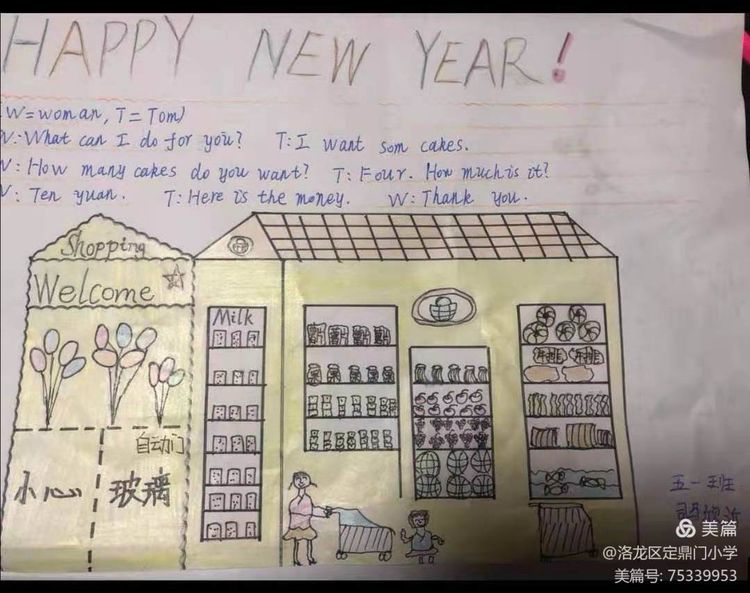 HAPPY NEW YEAR!
(W=woman, T=Tom)
W:What can I do for you? T:I want som cakes.
W:How many cakes do you want? T:Four. How much is it?
W: Ten yuan. T:Here is the money. W:Thank you.
Shopping
Welcome
Milk
牛排
自动门
小心 玻璃
五一班
美篇
@洛龙区定鼎门小学
美篇号: 75339953